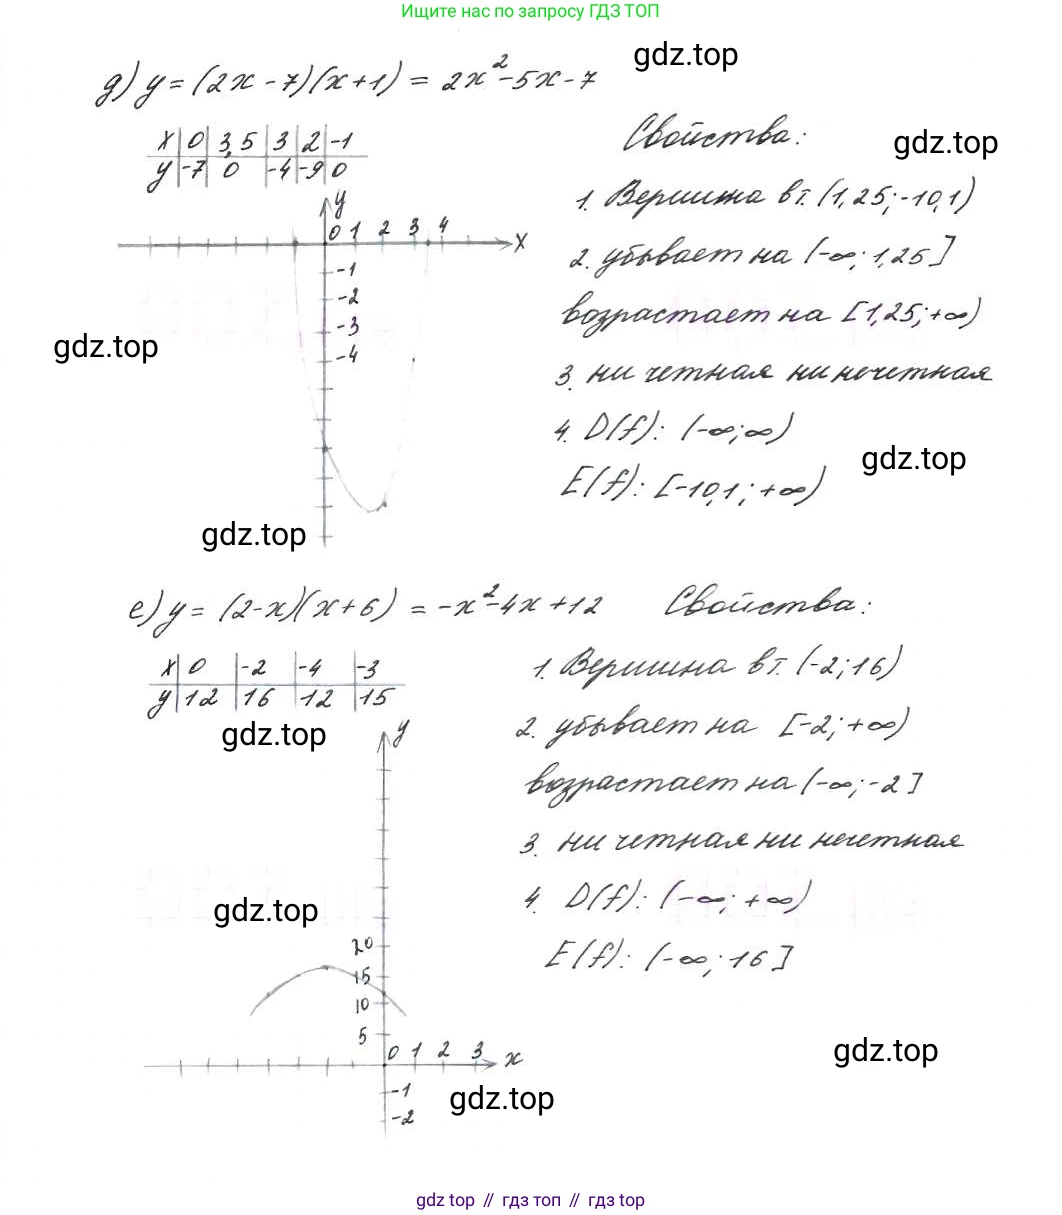 Ищите нас по запросу ГДЗ ТОП
gdz.top
д) y = (2x - 7)(x + 1) = 2x² - 5x - 7
x | 0 | 3,5 | 3 | 2 | -1
y | -7 | 0 | -4 | -9 | 0
Свойства:
gdz.top
1. Вершина в т. (1,25; -10,1)
2. убывает на (-∞; 1,25]
возрастает на [1,25; +∞)
3. ни четная ни нечетная
4. D(f): (-∞; ∞)
E(f): [-10,1; +∞)
gdz.top
y
0 1 2 3 4
x
-1
-2
-3
-4
gdz.top
gdz.top
е) y = (2-x)(x+6) = -x² - 4x + 12
x | 0 | -2 | -4 | -3
y | 12 | 16 | 12 | 15
Свойства:
1. Вершина в т. (-2; 16)
2. убывает на [-2; +∞)
возрастает на (-∞; -2]
3. ни четная ни нечетная
4. D(f): (-∞; +∞)
E(f): (-∞; 16]
gdz.top
y
gdz.top
20
15
10
5
0 1 2 3
x
-1
-2
gdz.top
gdz.top
gdz top // гдз топ // гдз top